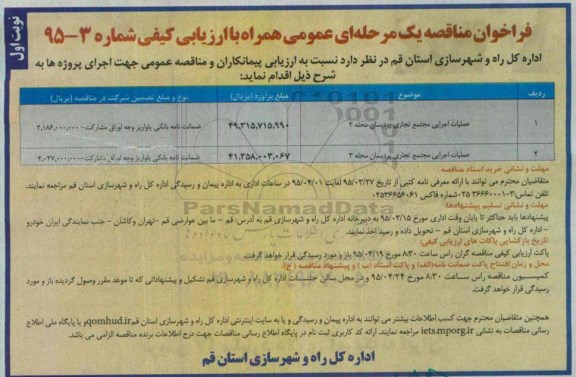 نوبت اول
فراخوان مناقصه یک مرحله‌ای عمومی همراه با ارزیابی کیفی شماره ۳-۹۵
اداره کل راه و شهرسازی استان قم در نظر دارد نسبت به ارزیابی پیمانکاران و مناقصه عمومی جهت اجرای پروژه ها به
شرح ذیل اقدام نماید:
ردیف موضوع مبلغ برآورد (بریال) نوع و مبلغ تضمین شرکت در مناقصه (بریال)
۱ عملیات اجرایی مجتمع تجاری پردیسان محله ۲ ۴۹,۳۱۵,۷۱۵,۹۹۰ ضمانت نامه بانکی یاواریز وجه اوراق مشارکت-۲,۱۸۶,۰۰۰,۰۰۰
۲ عملیات اجرایی مجتمع تجاری پردیسان محله ۳ ۴۱,۳۵۸,۰۰۳,۰۶۷ ضمانت نامه بانکی یاواریز وجه اوراق مشارکت-۲,۰۲۷,۰۰۰,۰۰۰
مهلت و نشانی خرید اسناد مناقصه:
متقاضیان محترم می توانند با ارائه معرفی نامه کتبی از تاریخ ۹۵/۰۳/۲۷ لغایت ۹۵/۰۴/۰۱ در ساعات اداری به اداره پیمان و رسیدگی اداره کل راه و شهرسازی استان قم مراجعه نمایند.
تلفن تماس:۳-۳۶۶۶۰۰۰۱-۰۲۵ شماره فاکس ۰۲۵۳۶۶۵۶۰۶۱
مهلت و نشانی تسلیم پیشنهادها:
پیشنهادها باید حداکثر تا پایان وقت اداری مورخ ۹۵/۰۴/۱۵ به دبیرخانه اداره کل راه و شهرسازی قم به آدرس: قم - ما بین عوارضی قم -تهران وکاشان - جنب نمایندگی ایران خودرو
- اداره کل راه و شهرسازی استان قم - تحویل داده و رسید اخذ نمایند.
تاریخ بازگشایی پاکات های ارزیابی کیفی:
پاکت ارزیابی کیفی مناقصه گران راس ساعت ۸:۳۰ مورخ ۹۵/۰۴/۱۹ باز و مورد رسیدگی قرار خواهد گرفت.
محل و زمان افتتاح پاکت ضمانت نامه(الف) و پاکت اسناد (ب) و پیشنهاد مناقصه (ج)
کمیسیون مناقصه راس ساعت ۸:۳۰ مورخ ۹۵/۰۴/۲۴ و در محل سالن جلسات اداره کل راه و شهرسازی قم تشکیل و پیشنهاداتی که تا موعد مقرر وصول گردیده باز و مورد
رسیدگی قرار خواهد گرفت.
همچنین متقاضیان محترم جهت کسب اطلاعات بیشتر می توانند به اداره پیمان و رسیدگی و یا به سایت اینترنتی اداره کل راه و شهرسازی استان قم qomhud.ir و یا پایگاه ملی اطلاع
رسانی مناقصات به نشانی iets.mporg.ir مراجعه نمایند. ارائه کد کاربری ثبت نام در پایگاه اطلاع رسانی مناقصات جهت درج اطلاعات برنده مناقصه الزامی می باشد.
اداره کل راه و شهرسازی استان قم
ParsNamadData